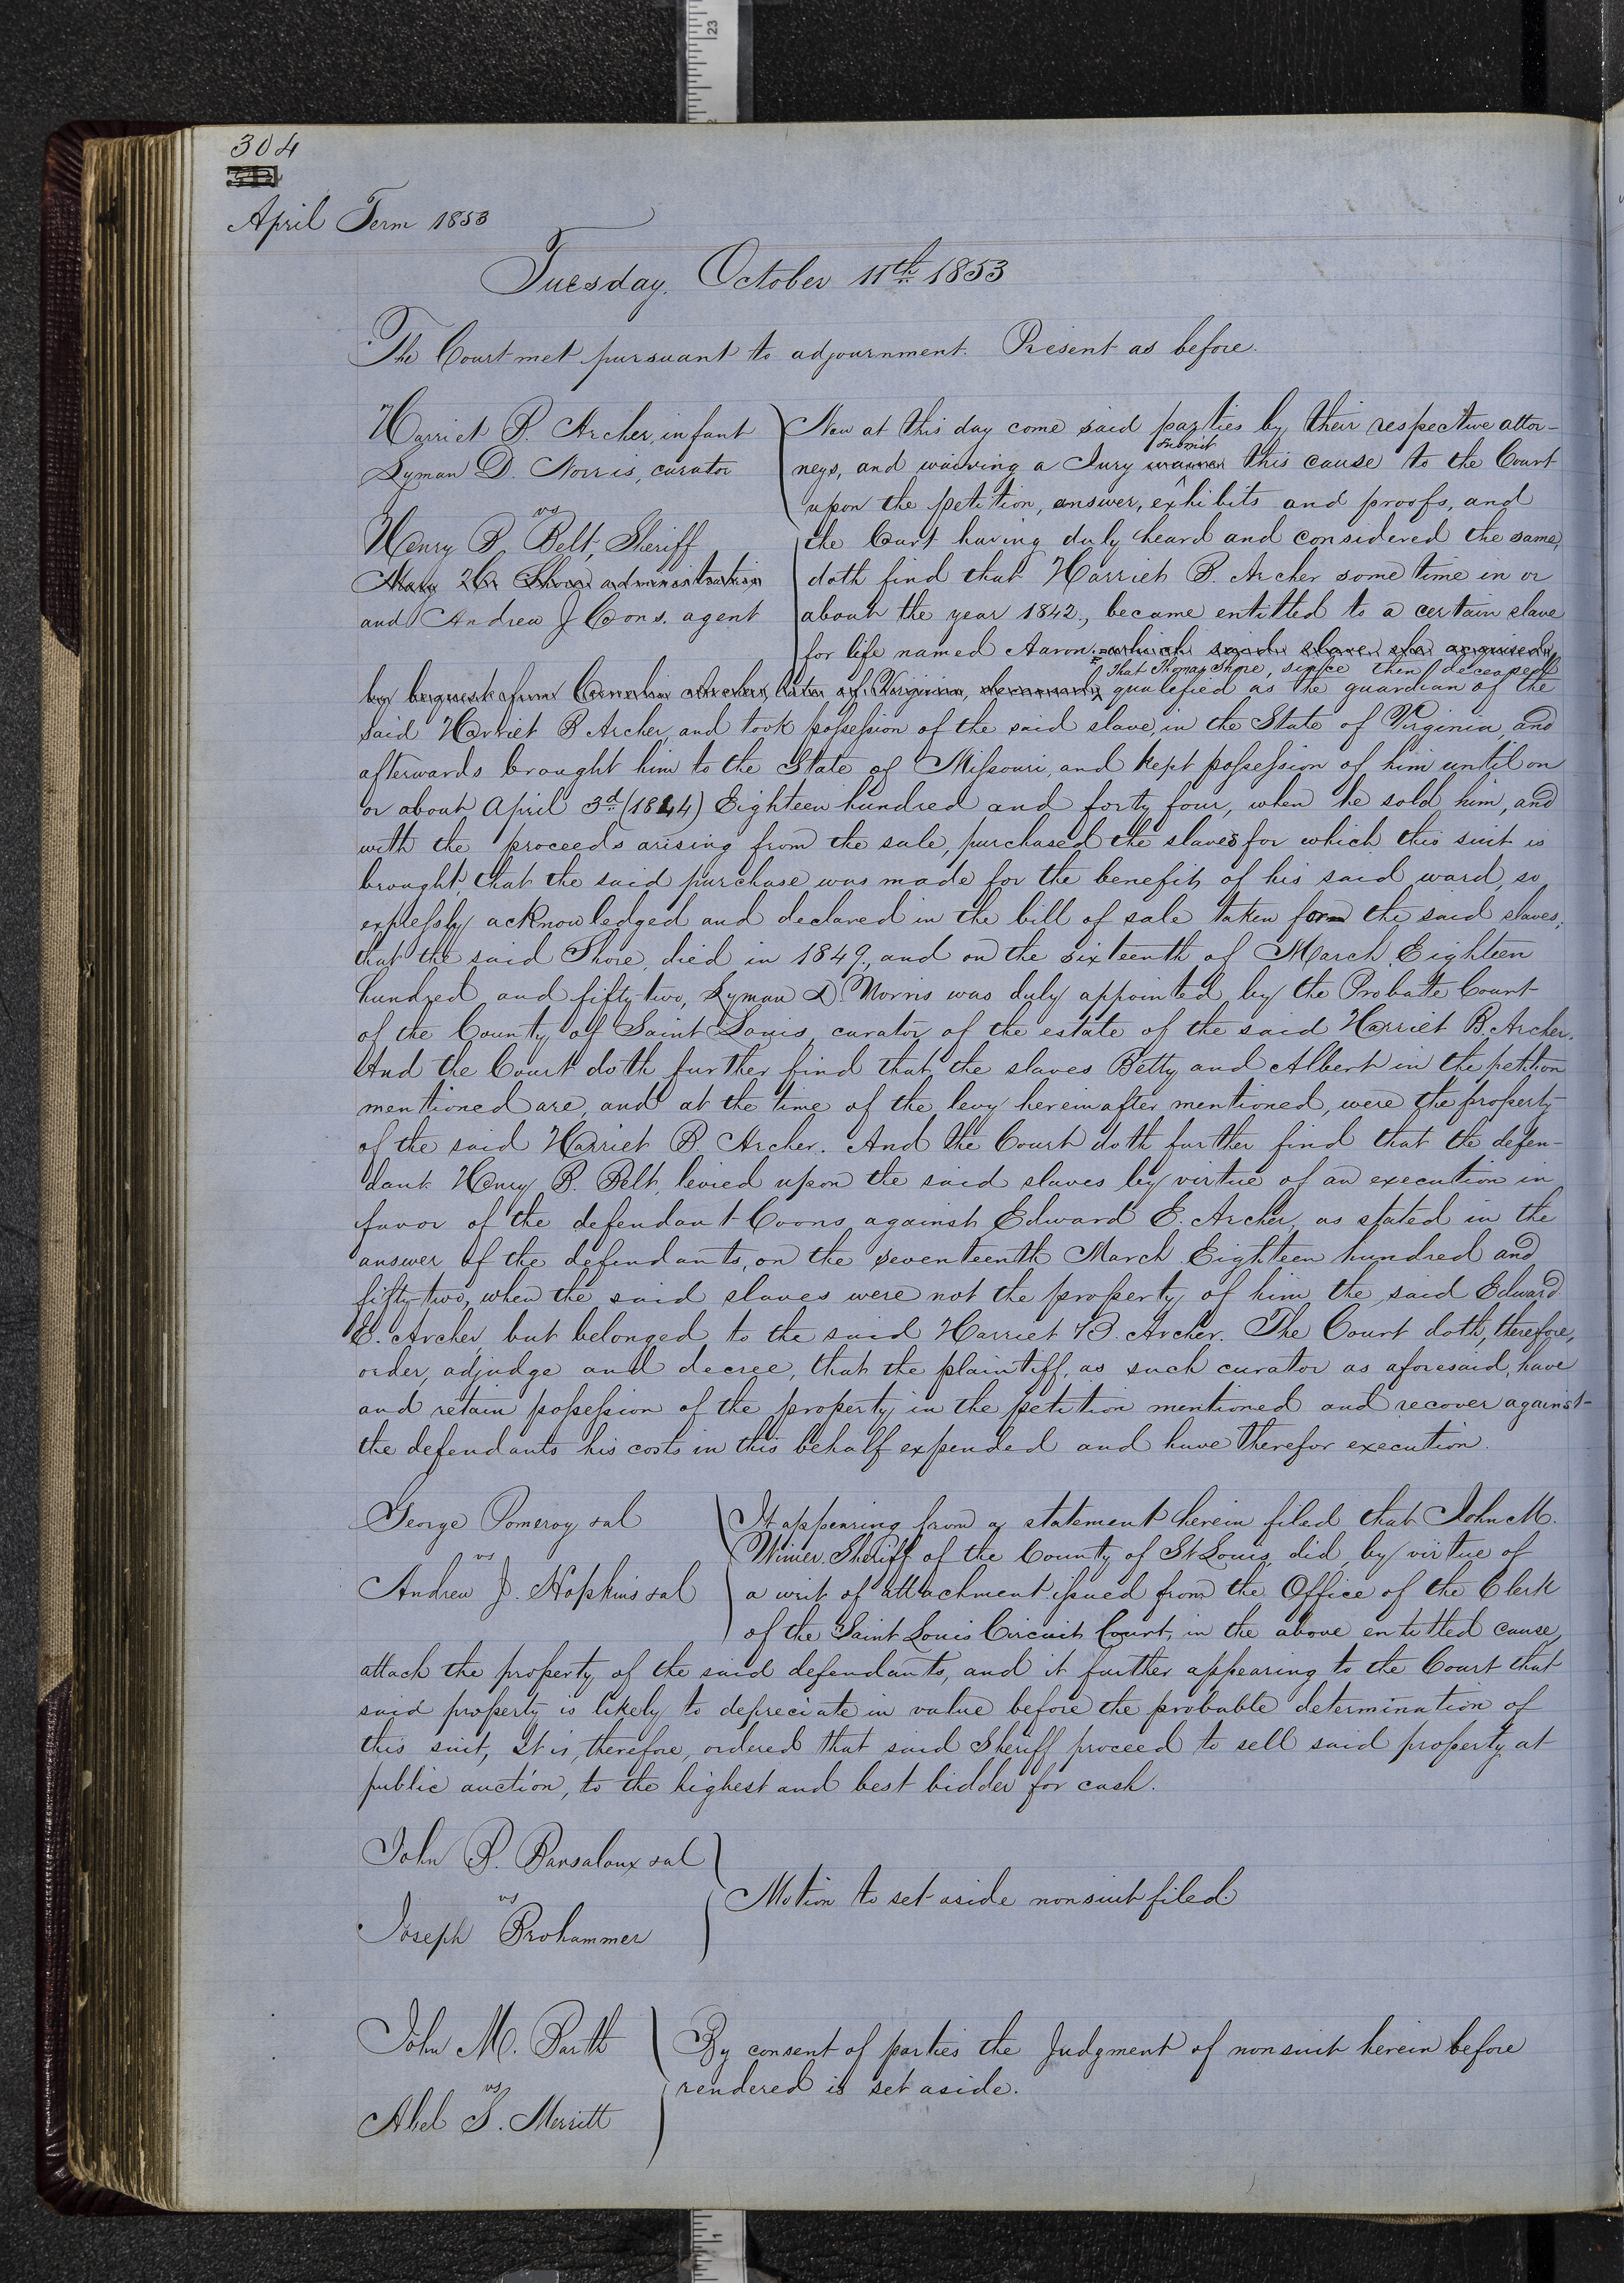 304
April Term 1853
Tuesday. October 11th 1853
The Court met pursuant to adjournment. Present as before.
Harriet B. Archer, infant
Lyman D. Norris, curator
vs
Henry B. Belt, Sheriff
Mary W. Shore administratrix
and Andrew J Coons. agent
Now at this day come said parties by their respective attor-
neys, and waiving a Jury submit this cause to the Court
upon the petition, answer, exhibits and proofs, and
the Court having duly heard and considered the same,
doth find that Harriet B. Archer some time in or
about the year 1842., became entitled to a certain slave
for life named Aaron. which said slave she acquired
That Thomas Shore, since then deceased
by bequest from Cornelia Archer, late of Virginia, deceased, qualefied as the guardian of the
said Harriet B Archer, and took possession of the said slave, in the State of Virginia, and
afterwards brought him to the State of Missouri, and kept possession of him until on
or about April 3d (1844) Eighteen hundred and forty four, when he sold him, and
with the proceeds arising from the sale, purchased the slaves for which this suit is
brought, that the said purchase was made for the benefit of his said ward, so
expressly acknowledged and declared in the bill of sale taken for the said slaves;
that the said Shore, died in 1849., and on the sixteenth of March Eighteen
hundred and fifty-two, Lyman D. Norris was duly appointed by the Probate Court
of the County of Saint Louis, curator of the estate of the said Harriet B. Archer.
And the Court doth further find that the slaves Betty and Albert in the petition
mentioned are, and at the time of the levy hereinafter mentioned, were the property
of the said Harriet B. Archer. And the Court doth further find that the defen-
dant Henry B. Belt, levied upon the said slaves by virtue of an execution in
favor of the defendant Coons, against Edward E. Archer, as stated in the
answer of the defendants, on the seventeenth March Eighteen hundred and
fifty-two, when the said slaves were not the property of him the said Edward
E. Archer, but belonged to the said Harriet B. Archer. The Court doth, therefore,
order, adjudge and decree, that the plaintiff, as such curator as aforesaid, have
and retain possession of the property in the petition mentioned and recover against
the defendants his costs in this behalf expended and have therefor execution.
George Pomeroy &al
vs
Andrew J. Hopkins &al
It appearing from a statement herein filed that John M.
Wimer Sheriff of the County of St Louis, did, by virtue of
a writ of attachment issued from the Office of the Clerk
of the Saint Louis Circuit Court, in the above entitled cause,
attach the property of the said defendants, and it further appearing to the Court that
said property is likely to depreciate in value before the probable determination of
this suit, It is, therefore, ordered that said Sheriff proceed to sell said property at
public auction, to the highest and best bidder for cash.
John B. Barsaloux &al
vs
Joseph Brohammer
Motion to set aside nonsuit filed.
John M. Barth
vs
Abel S. Merritt
By consent of parties the Judgment of nonsuit herein before
rendered is set aside.